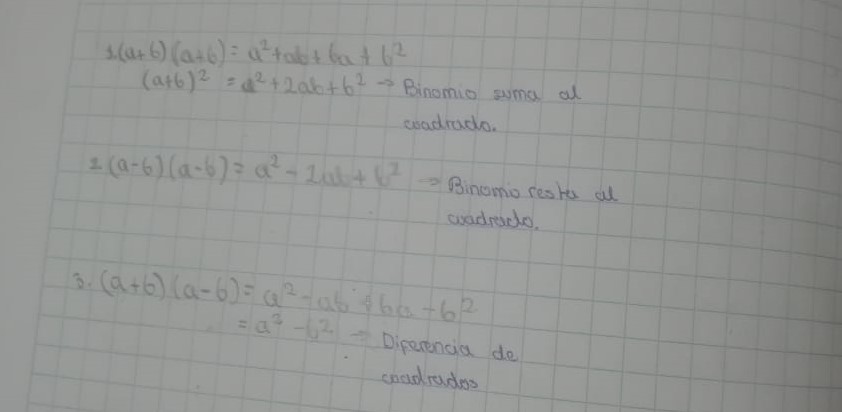 1.(a+b)(a+b)= a²+ab+ba+b²
(a+b)² = a²+2ab+b² → Binomio suma al
cuadrado.
2.(a-b)(a-b)= a²-2ab+b² → Binomio resta al
cuadrado.
3.(a+b)(a-b)= a²-ab+ba-b²
= a²-b² → Diferencia de
cuadrados